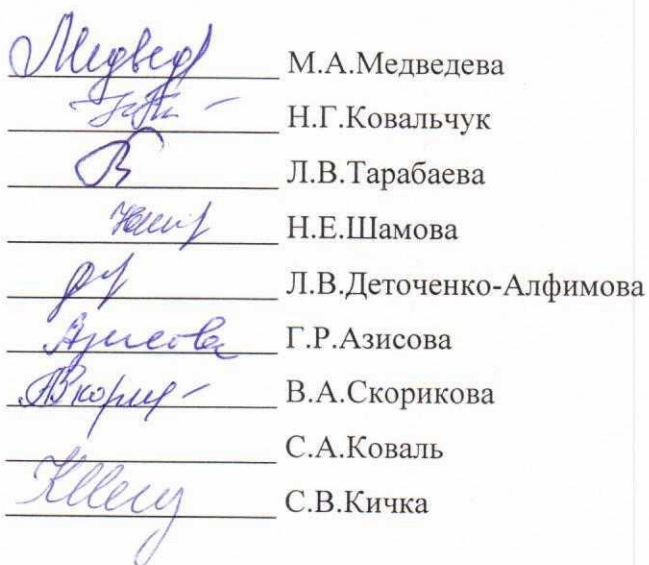 Медвед М.А.Медведева
Н.Г.Ковальчук
Л.В.Тарабаева
Н.Е.Шамова
Л.В.Деточенко-Алфимова
Азисова Г.Р.Азисова
В.А.Скорикова
С.А.Коваль
С.В.Кичка